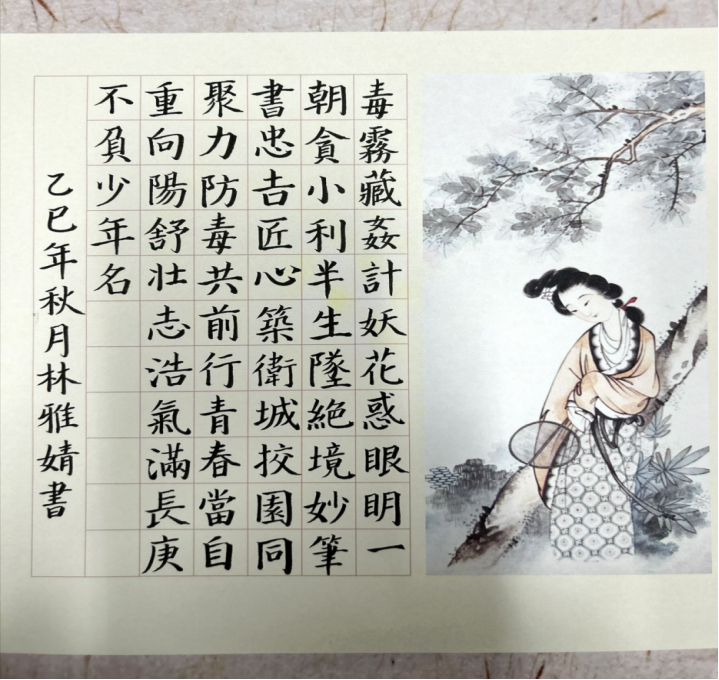 毒霧藏姦計妖花惑眼明一
朝貪小利半生墜絕境妙筆
書忠吉匠心築衛城挍園同
聚力防毒共前行青春當自
重向陽舒壯志浩氣滿長庚
不負少年名
乙巳年秋月林雅婧書